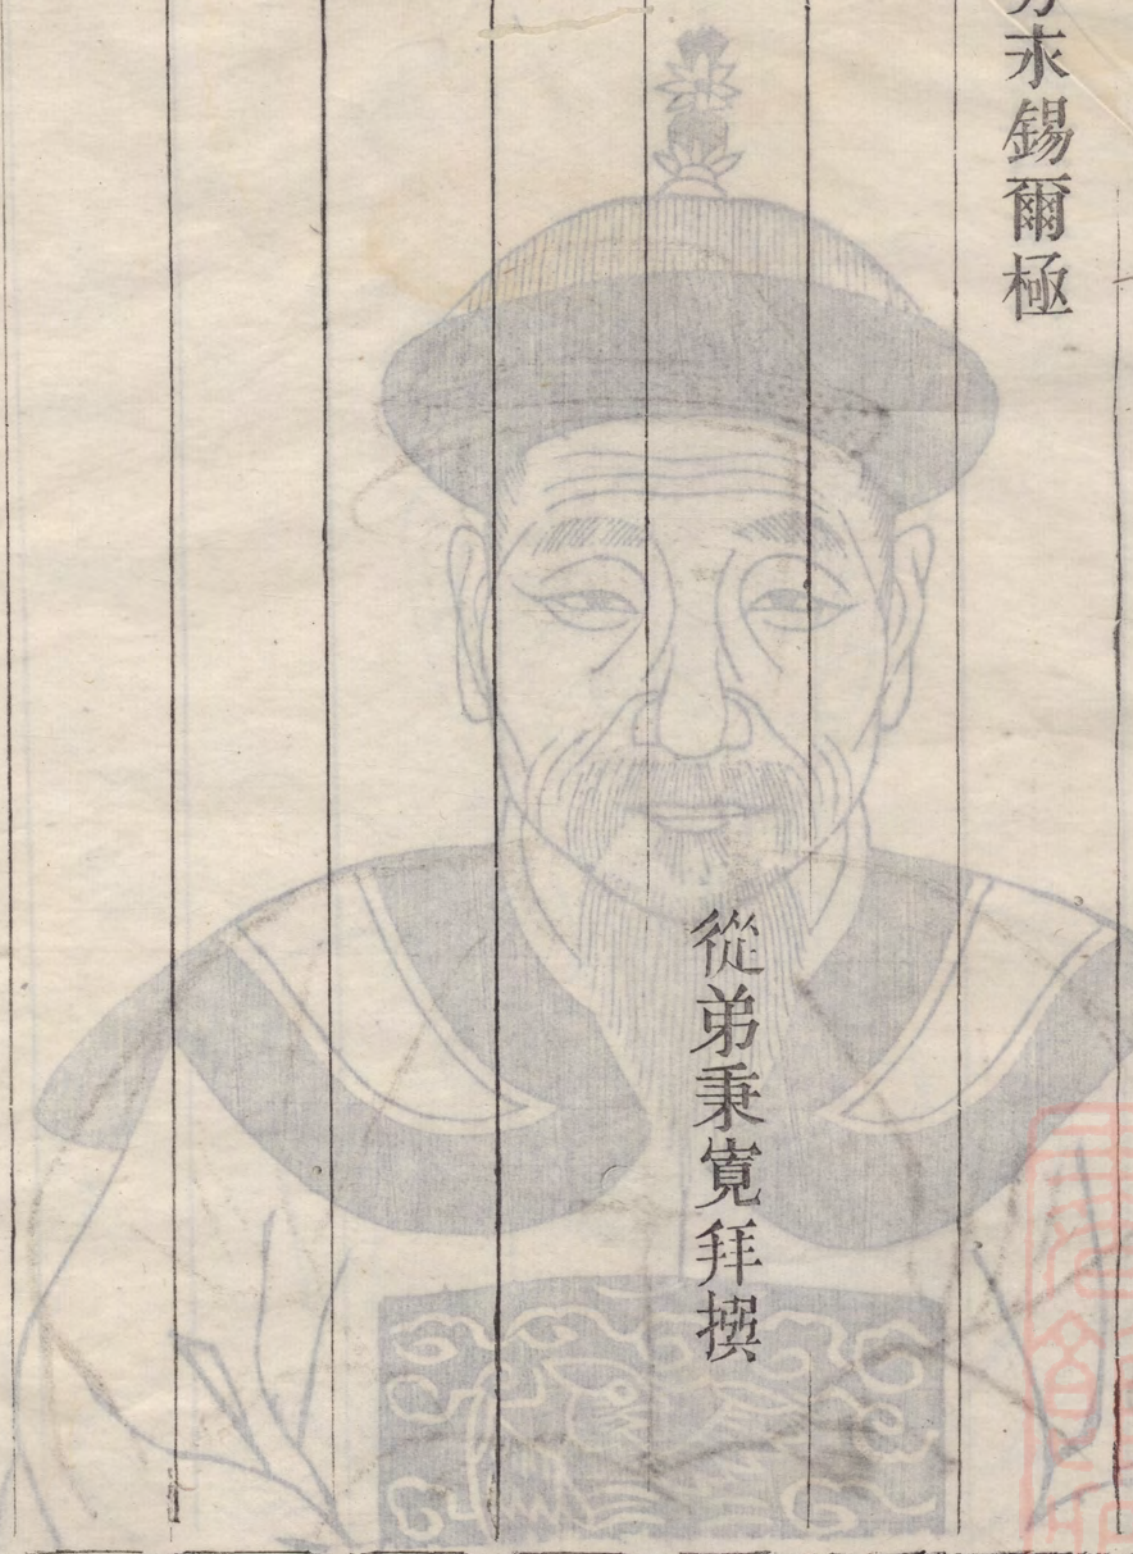 永錫爾極
從弟秉寬拜撰